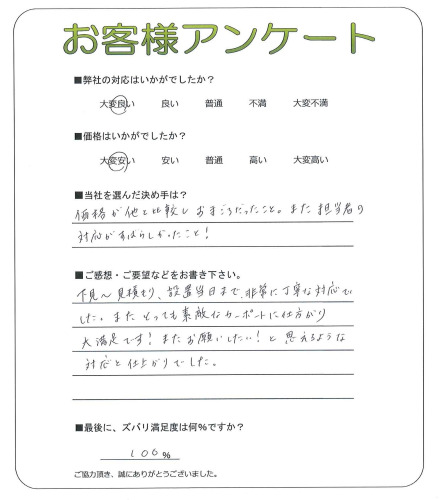 お客様アンケート
■弊社の対応はいかがでしたか？
大変良い 良い 普通 不満 大変不満
■価格はいかがでしたか？
大変安い 安い 普通 高い 大変高い
■当社を選んだ決め手は？
価格が他と比較しおまごろだったこと。また担当者の
対応がすばらしかったこと！
■ご感想・ご要望などをお書き下さい。
下見〜見積もり、設置当日まで、非常に丁寧な対応で
した。またとっても素敵なカーポートに仕上がり
大満足です！またお願いしたい！と思えるような
対応と仕上がりでした。
■最後に、ズバリ満足度は何％ですか？
100％
ご協力頂き、誠にありがとうございました。